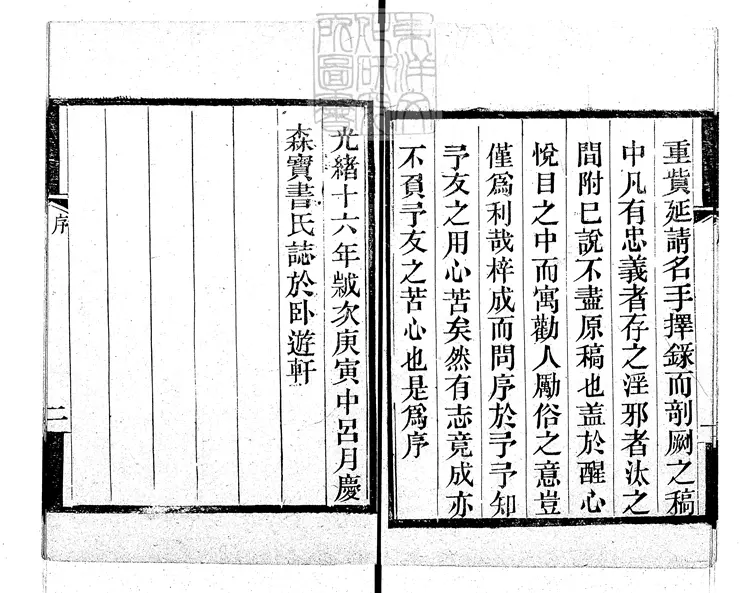 重貲延請名手擇錄而剞劂之稿
中凡有忠義者存之淫邪者汰之
間附已說不盡原稿也盖於醒心
悅目之中而寓勸人勵俗之意豈
僅爲利哉梓成而問序於予予知
予友之用心苦矣然有志竟成亦
不負予友之苦心也是爲序
光緒十六年歲次庚寅中呂月慶
森寶書氏誌於卧遊軒
序
二